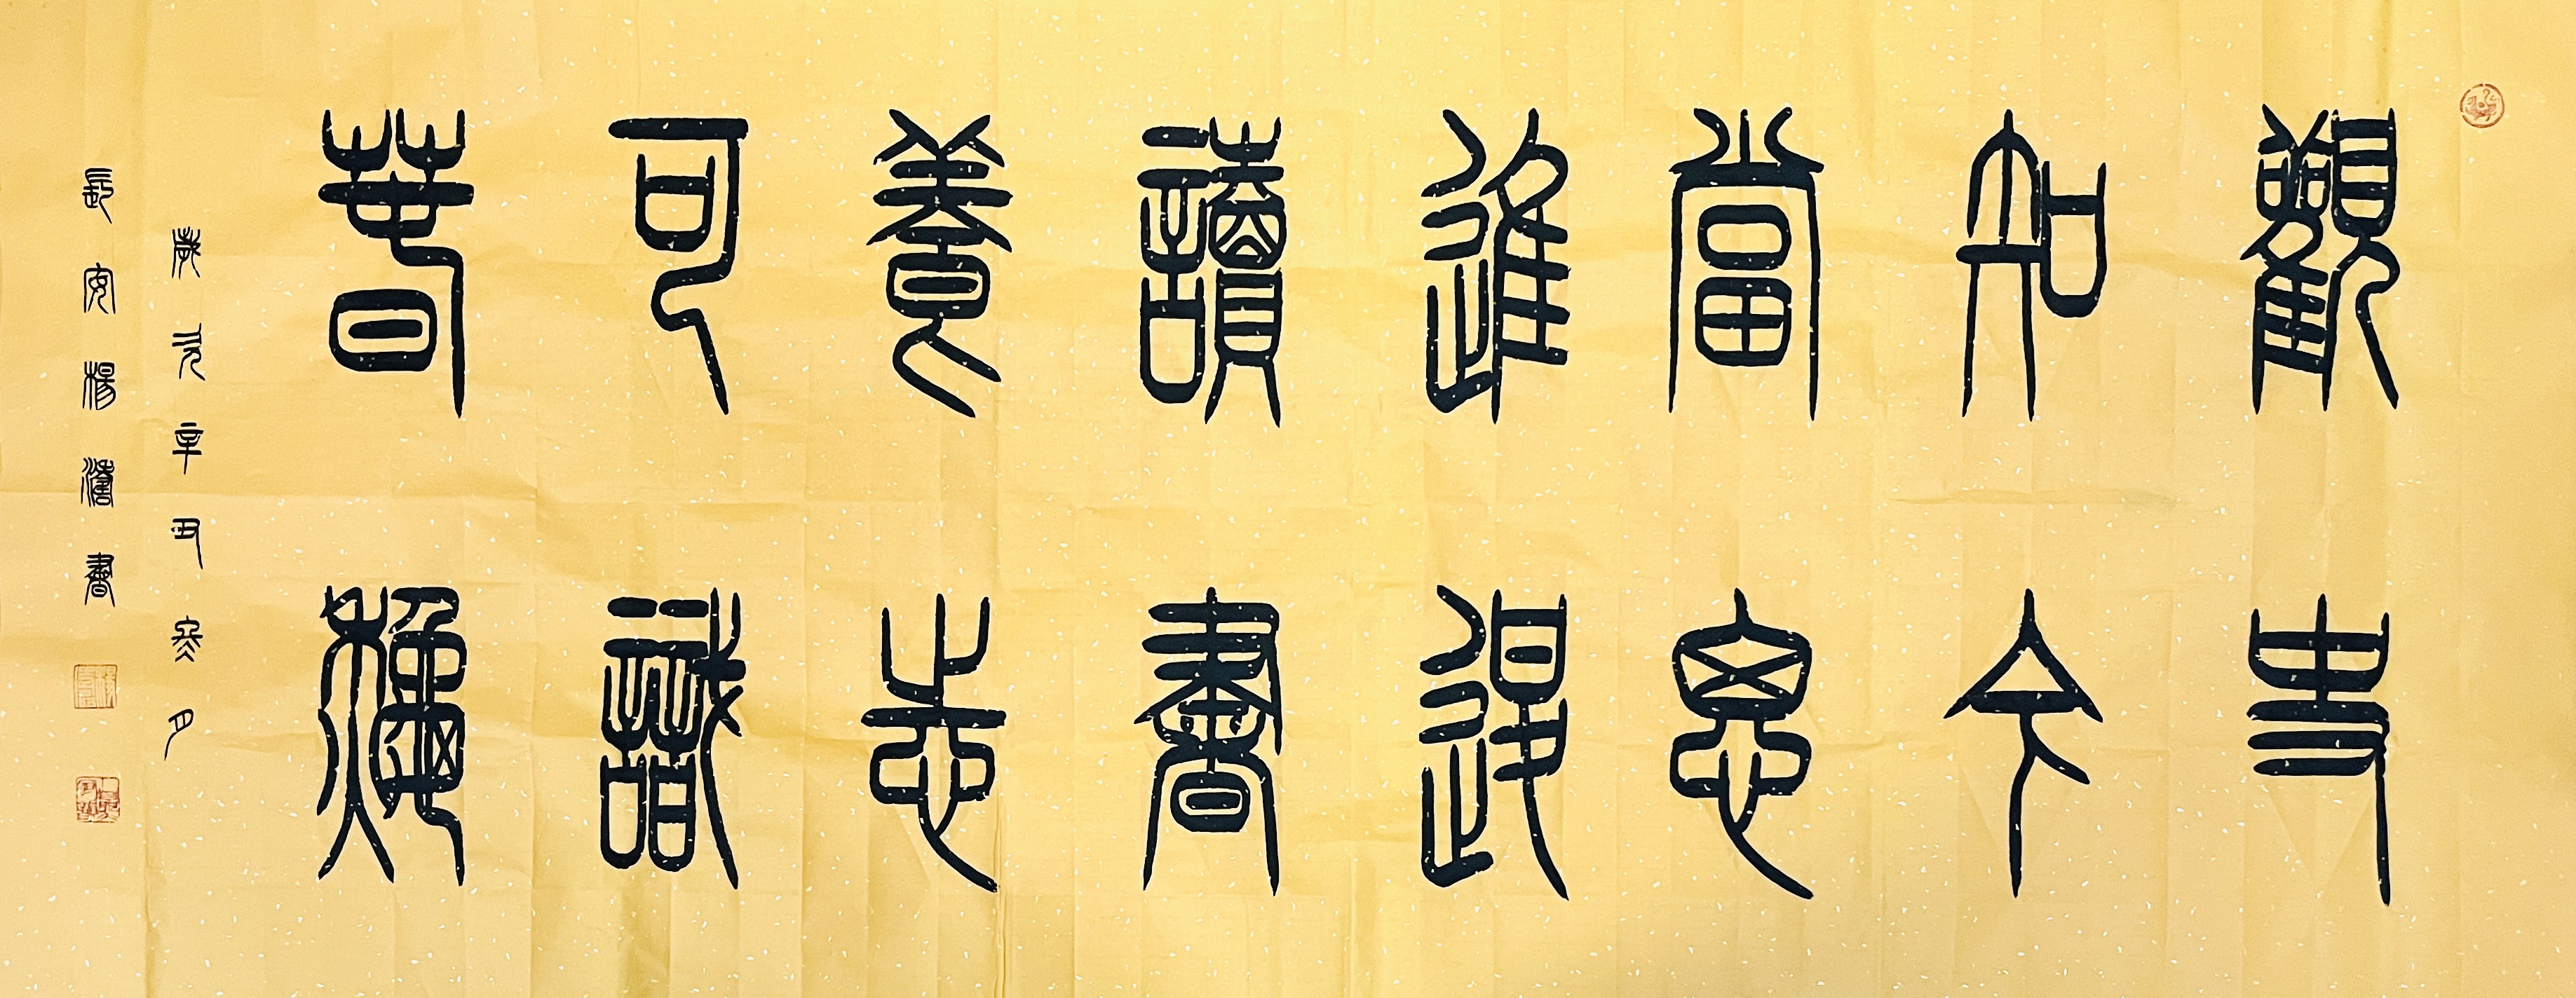 觀史
知今
當思
進退
讀書
養志
可識
春秋
歲次辛丑寒月
長安楊濤書